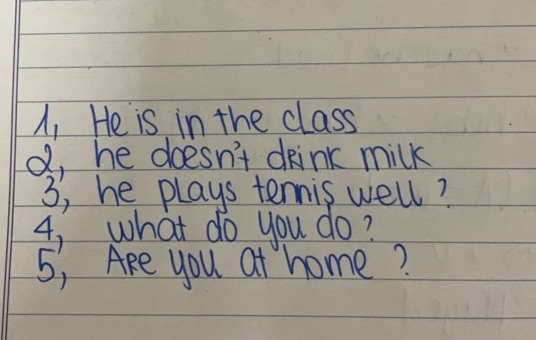 1, He is in the class
2, he doesn't drink milk
3, he plays tennis well?
4, what do you do?
5, Are you at home?